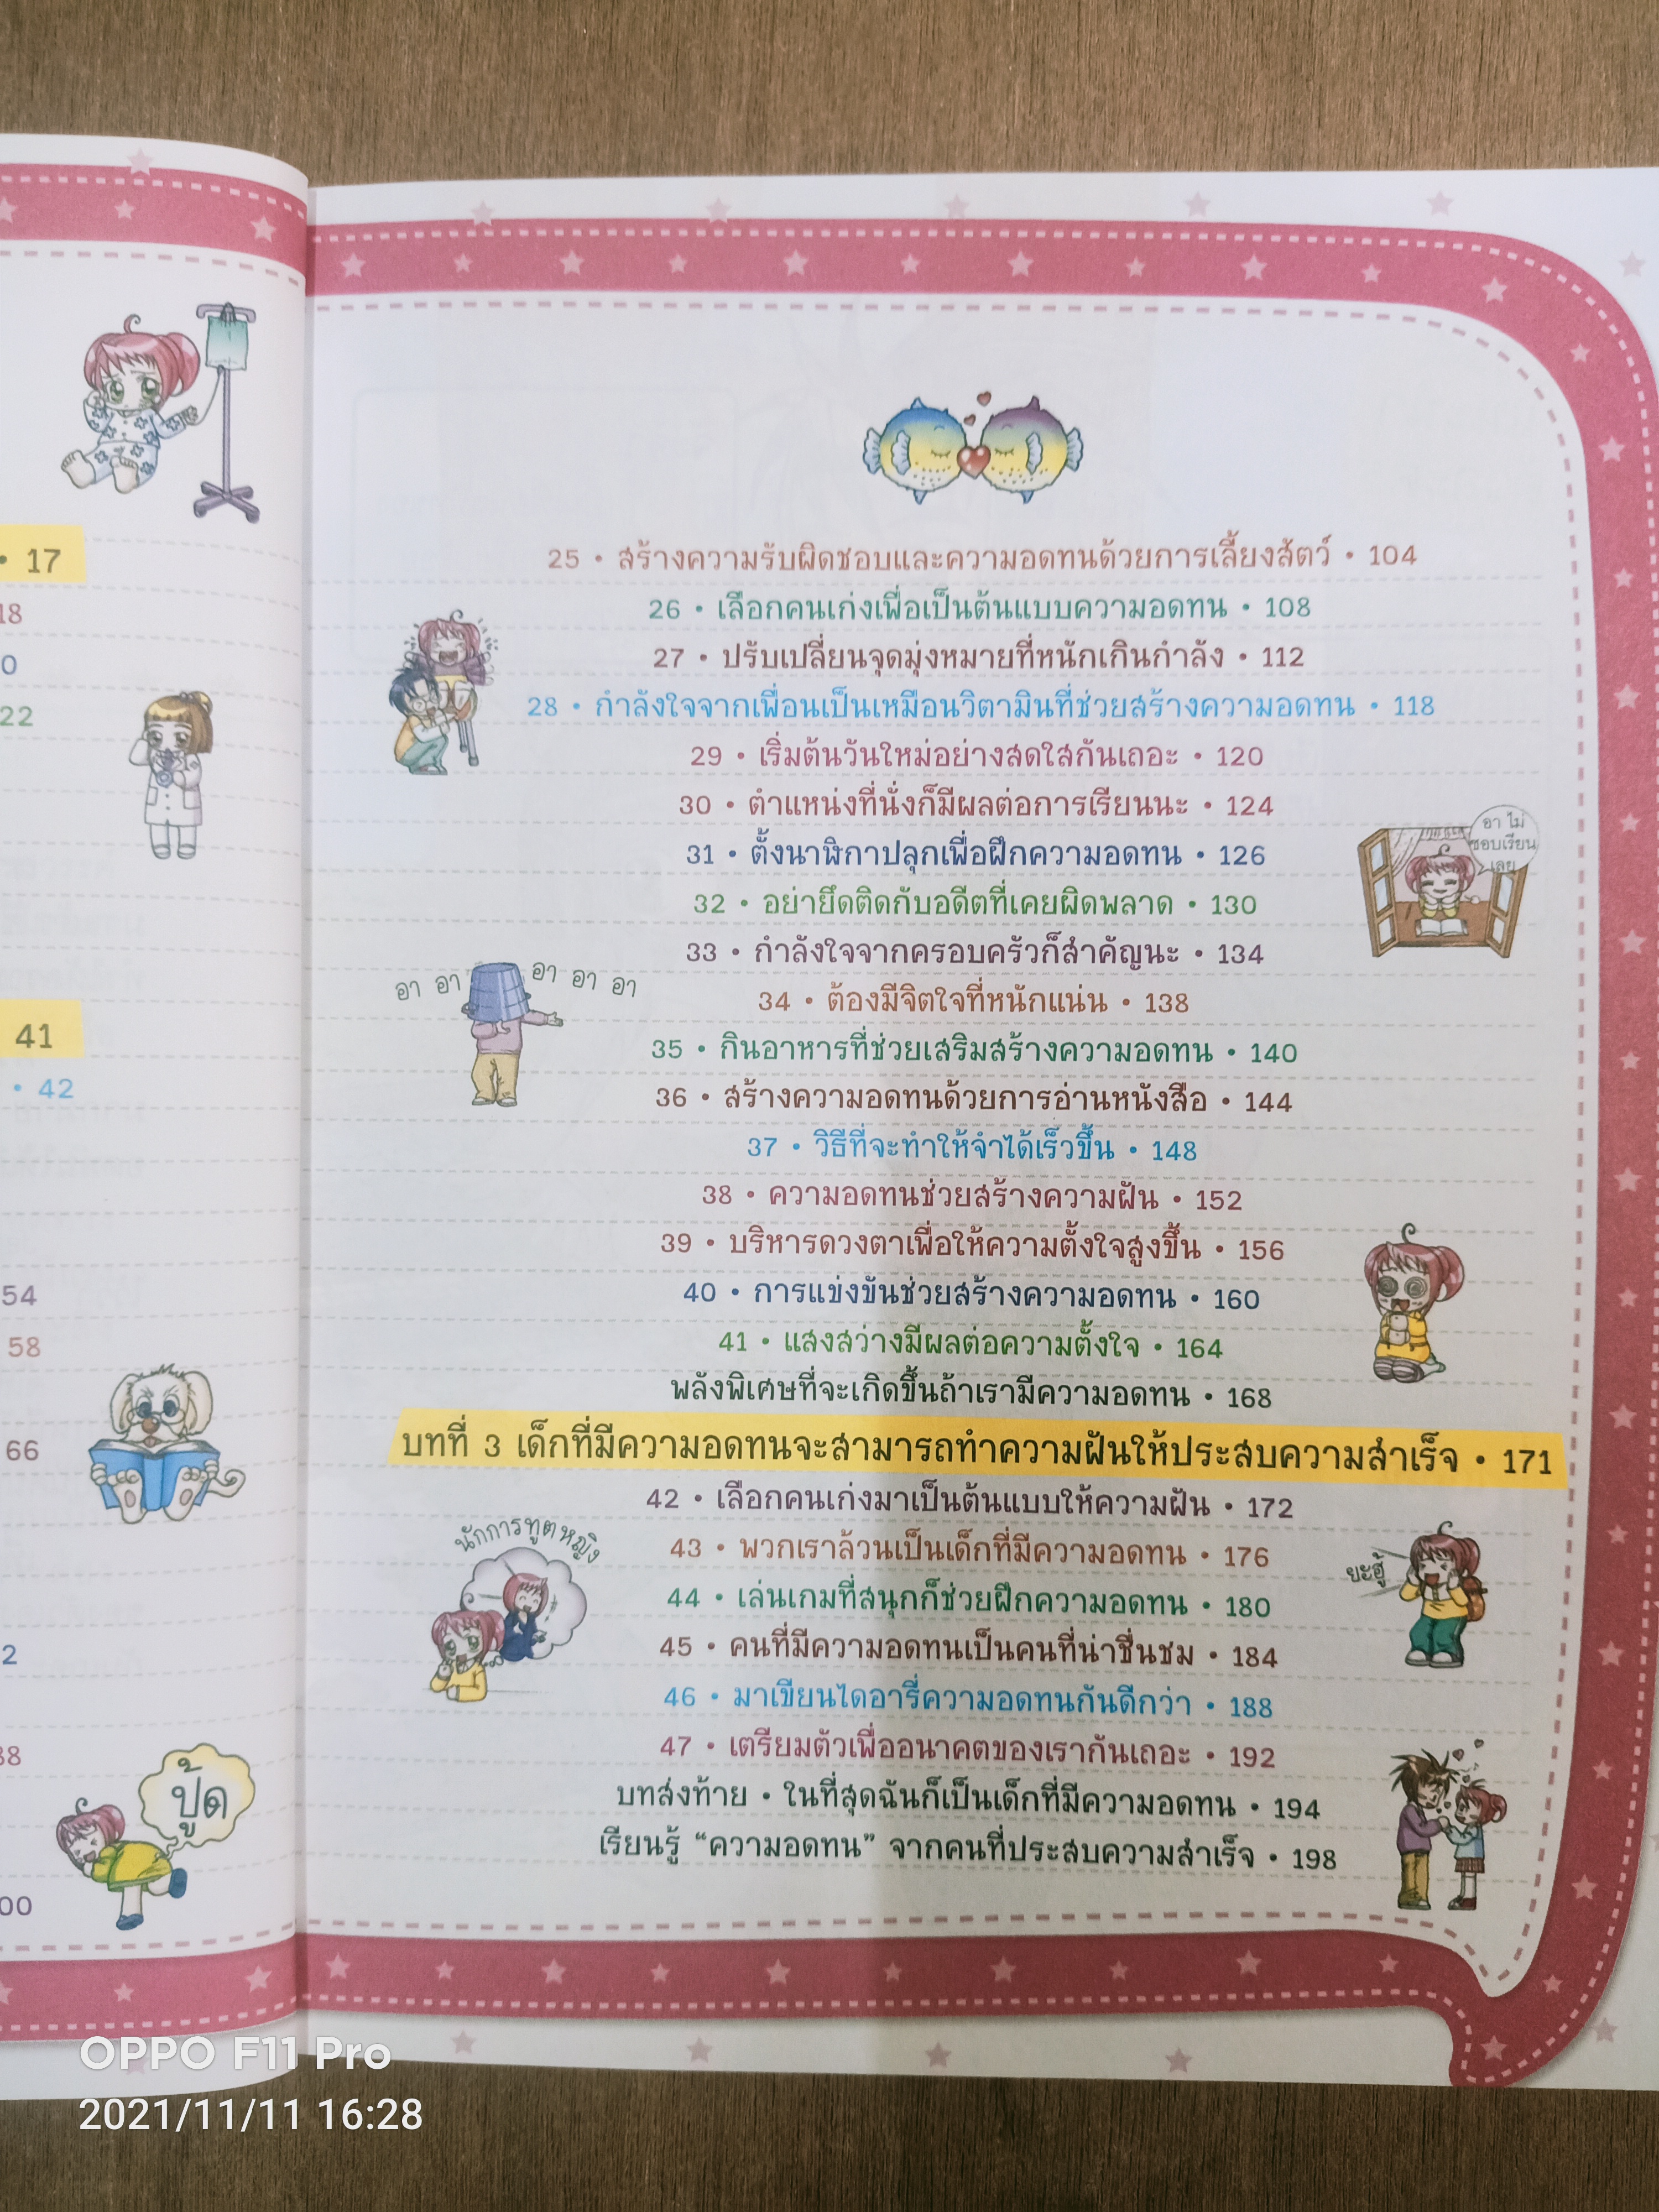 • 17
18
0
22
41
• 42
54
58
66
2
38
ปู้ด
00
25 • สร้างความรับผิดชอบและความอดทนด้วยการเลี้ยงสัตว์ • 104
26 • เลือกคนเก่งเพื่อเป็นต้นแบบความอดทน • 108
27 • ปรับเปลี่ยนจุดมุ่งหมายที่หนักเกินกำลัง • 112
28 • กำลังใจจากเพื่อนเป็นเหมือนวิตามินที่ช่วยสร้างความอดทน • 118
29 • เริ่มต้นวันใหม่อย่างสดใสกันเถอะ • 120
30 • ตำแหน่งที่นั่งก็มีผลต่อการเรียนนะ • 124
อา ไม่
ชอบเรียน
เลย
31 • ตั้งนาฬิกาปลุกเพื่อฝึกความอดทน • 126
32 • อย่ายึดติดกับอดีตที่เคยผิดพลาด • 130
33 • กำลังใจจากครอบครัวก็สำคัญนะ • 134
อา อา อา อา อา
34 • ต้องมีจิตใจที่หนักแน่น • 138
35 • กินอาหารที่ช่วยเสริมสร้างความอดทน • 140
36 • สร้างความอดทนด้วยการอ่านหนังสือ • 144
37 • วิธีที่จะทำให้จำได้เร็วขึ้น • 148
38 • ความอดทนช่วยสร้างความฝัน • 152
39 • บริหารดวงตาเพื่อให้ความตั้งใจสูงขึ้น • 156
40 • การแข่งขันช่วยสร้างความอดทน • 160
41 • แสงสว่างมีผลต่อความตั้งใจ • 164
พลังพิเศษที่จะเกิดขึ้นถ้าเรามีความอดทน • 168
บทที่ 3 เด็กที่มีความอดทนจะสามารถทำความฝันให้ประสบความสำเร็จ • 171
42 • เลือกคนเก่งมาเป็นต้นแบบให้ความฝัน • 172
นักการทูตหญิง
43 • พวกเราล้วนเป็นเด็กที่มีความอดทน • 176
ยะฮู้
44 • เล่นเกมที่สนุกก็ช่วยฝึกความอดทน • 180
45 • คนที่มีความอดทนเป็นคนที่น่าชื่นชม • 184
46 • มาเขียนไดอารี่ความอดทนกันดีกว่า • 188
47 • เตรียมตัวเพื่ออนาคตของเรากันเถอะ • 192
บทส่งท้าย • ในที่สุดฉันก็เป็นเด็กที่มีความอดทน • 194
เรียนรู้ “ความอดทน” จากคนที่ประสบความสำเร็จ • 198
OPPO F11 Pro
2021/11/11 16:28